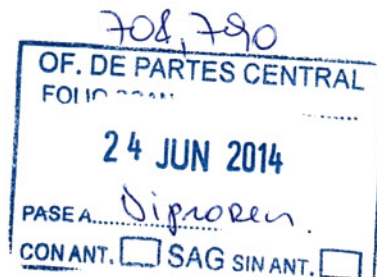 708,790
OF. DE PARTES CENTRAL
FOLIO
24 JUN 2014
PASE A..... Diproren.
CON ANT. SAG SIN ANT.